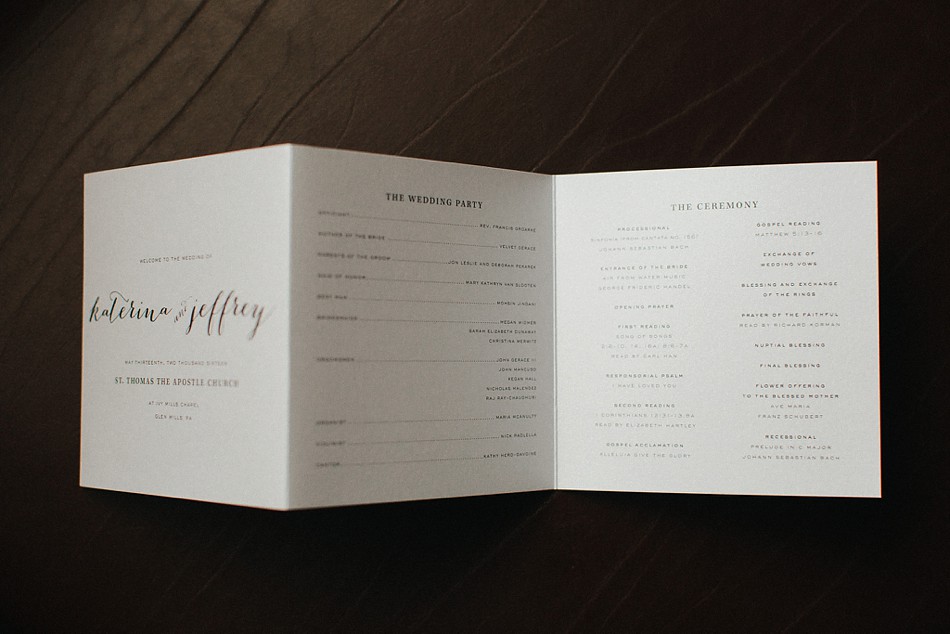 WELCOME TO THE WEDDING OF
katerina and jeffrey
MAY THIRTEENTH, TWO THOUSAND SIXTEEN
ST. THOMAS THE APOSTLE CHURCH
AT IVY MILLS CHAPEL
GLEN MILLS, PA
THE WEDDING PARTY
OFFICIANT REV. FRANCIS
MOTHER OF THE BRIDE VELVET
PARENTS OF THE GROOM JON LESLIE AND DEBORAH
MAID OF HONOR MARY KATHRYN VAN SLOOTEN
BEST MAN MOHSIN
BRIDESMAIDS MEGAN
SARAH ELIZABETH
CHRISTINA
GROOMSMEN JOHN GERACE III
JOHN
KEGAN HALL
NICHOLAS
RAJ RAY-CHAUDHURI
ORGANIST MARIA MCANULTY
VIOLINIST NICK PAOLELLA
CANTOR KATHY
THE CEREMONY
PROCESSIONAL
SINFONIA FROM CANTATA NO.
JOHANN SEBASTIAN BACH
ENTRANCE OF THE BRIDE
AIR FROM WATER MUSIC
GEORGE FRIDERIC HANDEL
OPENING PRAYER
FIRST READING
SONG OF SONGS
READ BY
RESPONSORIAL PSALM
I HAVE LOVED YOU
SECOND READING
CORINTHIANS
READ BY ELIZABETH HARTLEY
GOSPEL ACCLAMATION
ALLELUIA GIVE THE GLORY
GOSPEL READING
MATTHEW 5:13-16
EXCHANGE OF
WEDDING VOWS
BLESSING AND EXCHANGE
OF THE RINGS
PRAYER OF THE FAITHFUL
READ BY RICHARD
NUPTIAL BLESSING
FINAL BLESSING
FLOWER OFFERING
TO THE BLESSED MOTHER
AVE MARIA
FRANZ SCHUBERT
RECESSIONAL
PRELUDE IN C MAJOR
JOHANN SEBASTIAN BACH